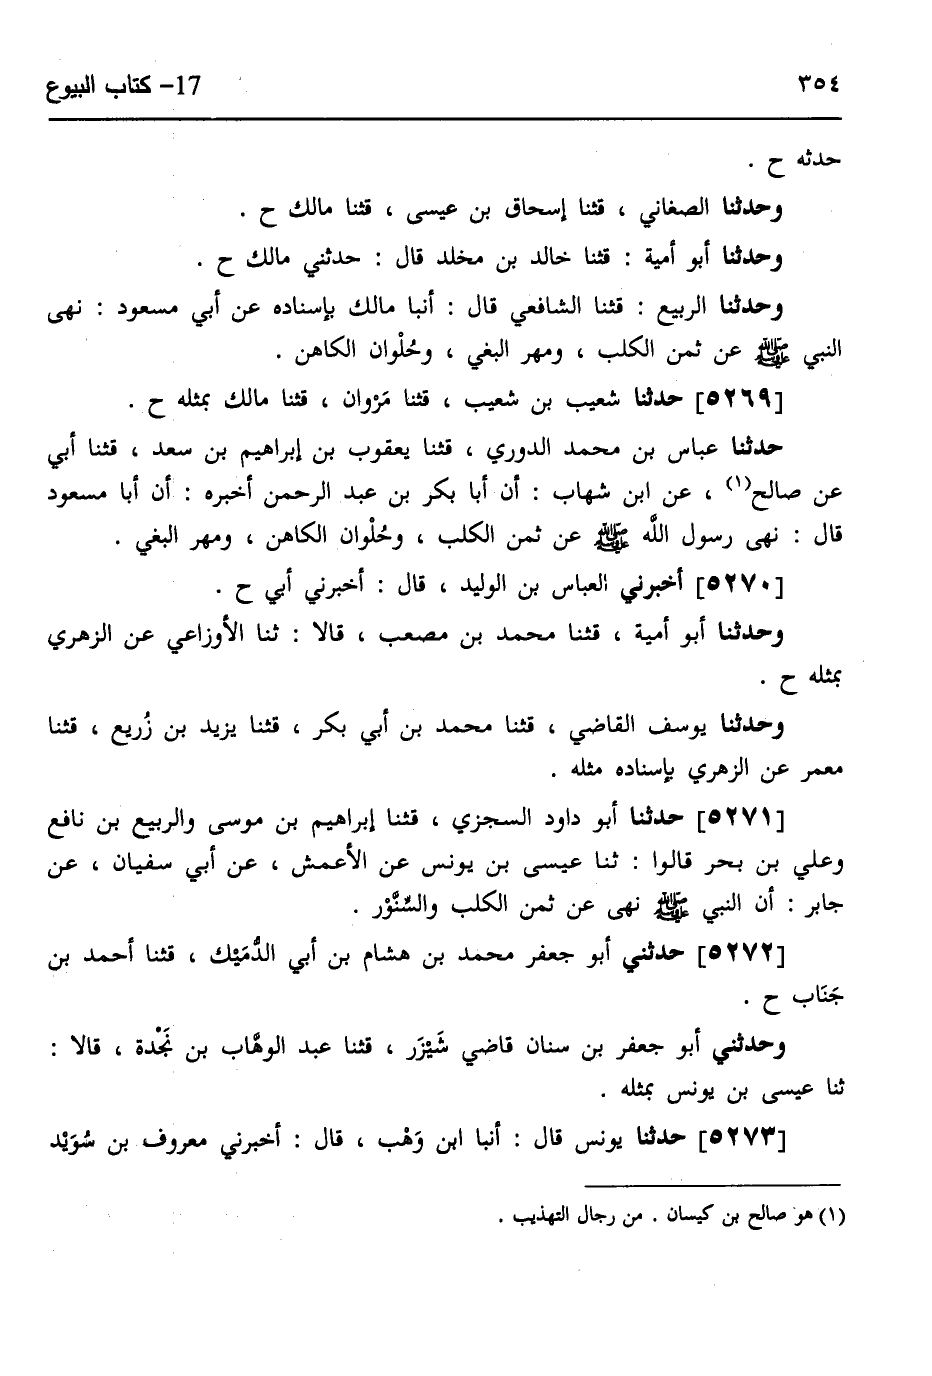 ٣٥٤
17- كتاب البيوع
حدثه ح .
وحدثنا الصغاني ، قثنا إسحاق بن عيسى ، قثنا مالك ح .
وحدثنا أبو أمية : قثنا خالد بن مخلد قال : حدثني مالك ح .
وحدثنا الربيع : قثنا الشافعي قال : أنبا مالك بإسناده عن أبي مسعود : نهى
النبي ﷺ عن ثمن الكلب ، ومهر البغي ، وحُلْوان الكاهن .
[٥٢٦٩] حدثنا شعيب بن شعيب ، قثنا مَرْوان ، قثنا مالك بمثله ح .
حدثنا عباس بن محمد الدوري ، قثنا يعقوب بن إبراهيم بن سعد ، قثنا أبي
عن صالح(١) ، عن ابن شهاب : أن أبا بكر بن عبد الرحمن أخبره : أن أبا مسعود
قال : نهى رسول اللَّه ﷺ عن ثمن الكلب ، وحُلْوان الكاهن ، ومهر البغي .
[٥٢٧٠] أخبرني العباس بن الوليد ، قال : أخبرني أبي ح .
وحدثنا أبو أمية ، قثنا محمد بن مصعب ، قالا : ثنا الأوزاعي عن الزهري
بمثله ح .
وحدثنا يوسف القاضي ، قثنا محمد بن أبي بكر ، قثنا يزيد بن زُريع ، قثنا
معمر عن الزهري بإسناده مثله .
[٥٢٧١] حدثنا أبو داود السجزي ، قثنا إبراهيم بن موسى والربيع بن نافع
وعلي بن بحر قالوا : ثنا عيسى بن يونس عن الأعمش ، عن أبي سفيان ، عن
جابر : أن النبي ﷺ نهى عن ثمن الكلب والسِّنَّوْر .
[٥٢٧٢] حدثني أبو جعفر محمد بن هشام بن أبي الدُّمَيْك ، قثنا أحمد بن
جَنَاب ح .
وحدثني أبو جعفر بن سنان قاضي شَيْزَر ، قثنا عبد الوهَّاب بن نَجْدة ، قالا :
ثنا عيسى بن يونس بمثله .
[٥٢٧٣] حدثنا يونس قال : أنبا ابن وَهْب ، قال : أخبرني معروف بن سُوَيْد
(١) هو صالح بن كيسان . من رجال التهذيب .